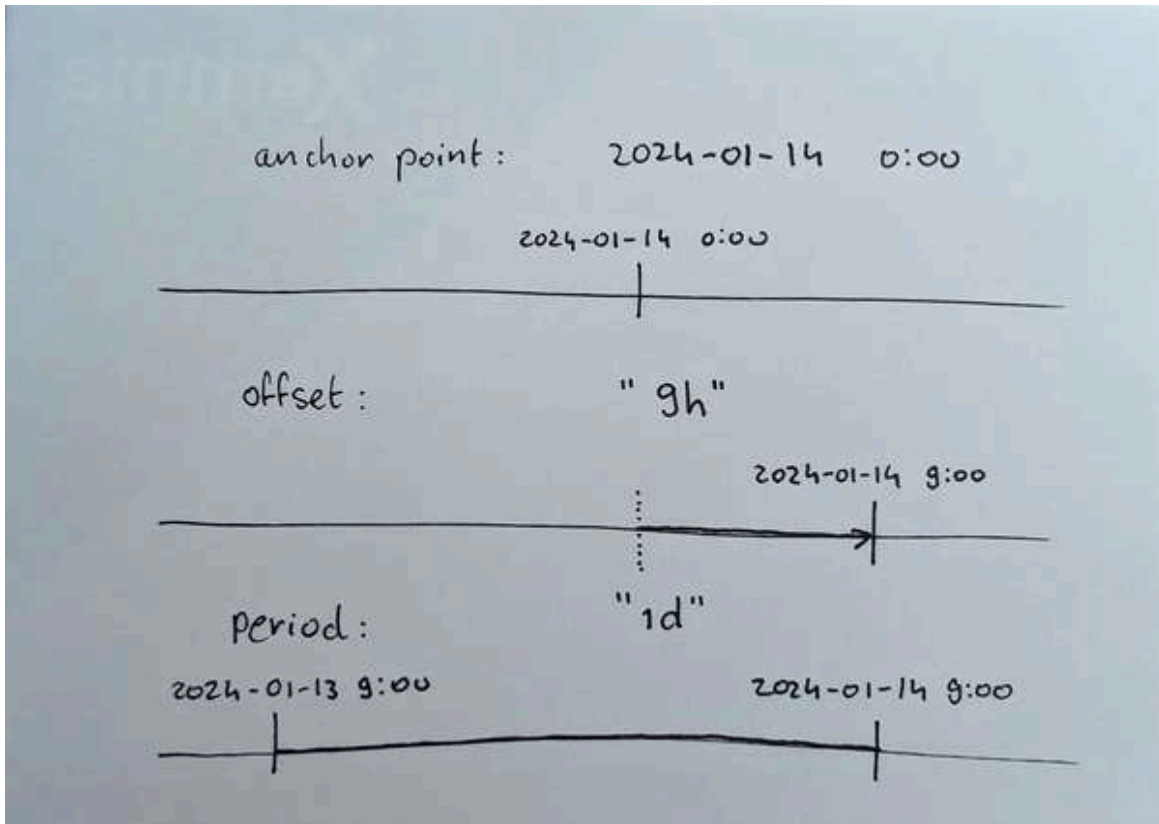 anchor point: 2024-01-14 0:00
2024-01-14 0:00
offset: "9h"
2024-01-14 9:00
period: "1d"
2024-01-13 9:00 2024-01-14 9:00